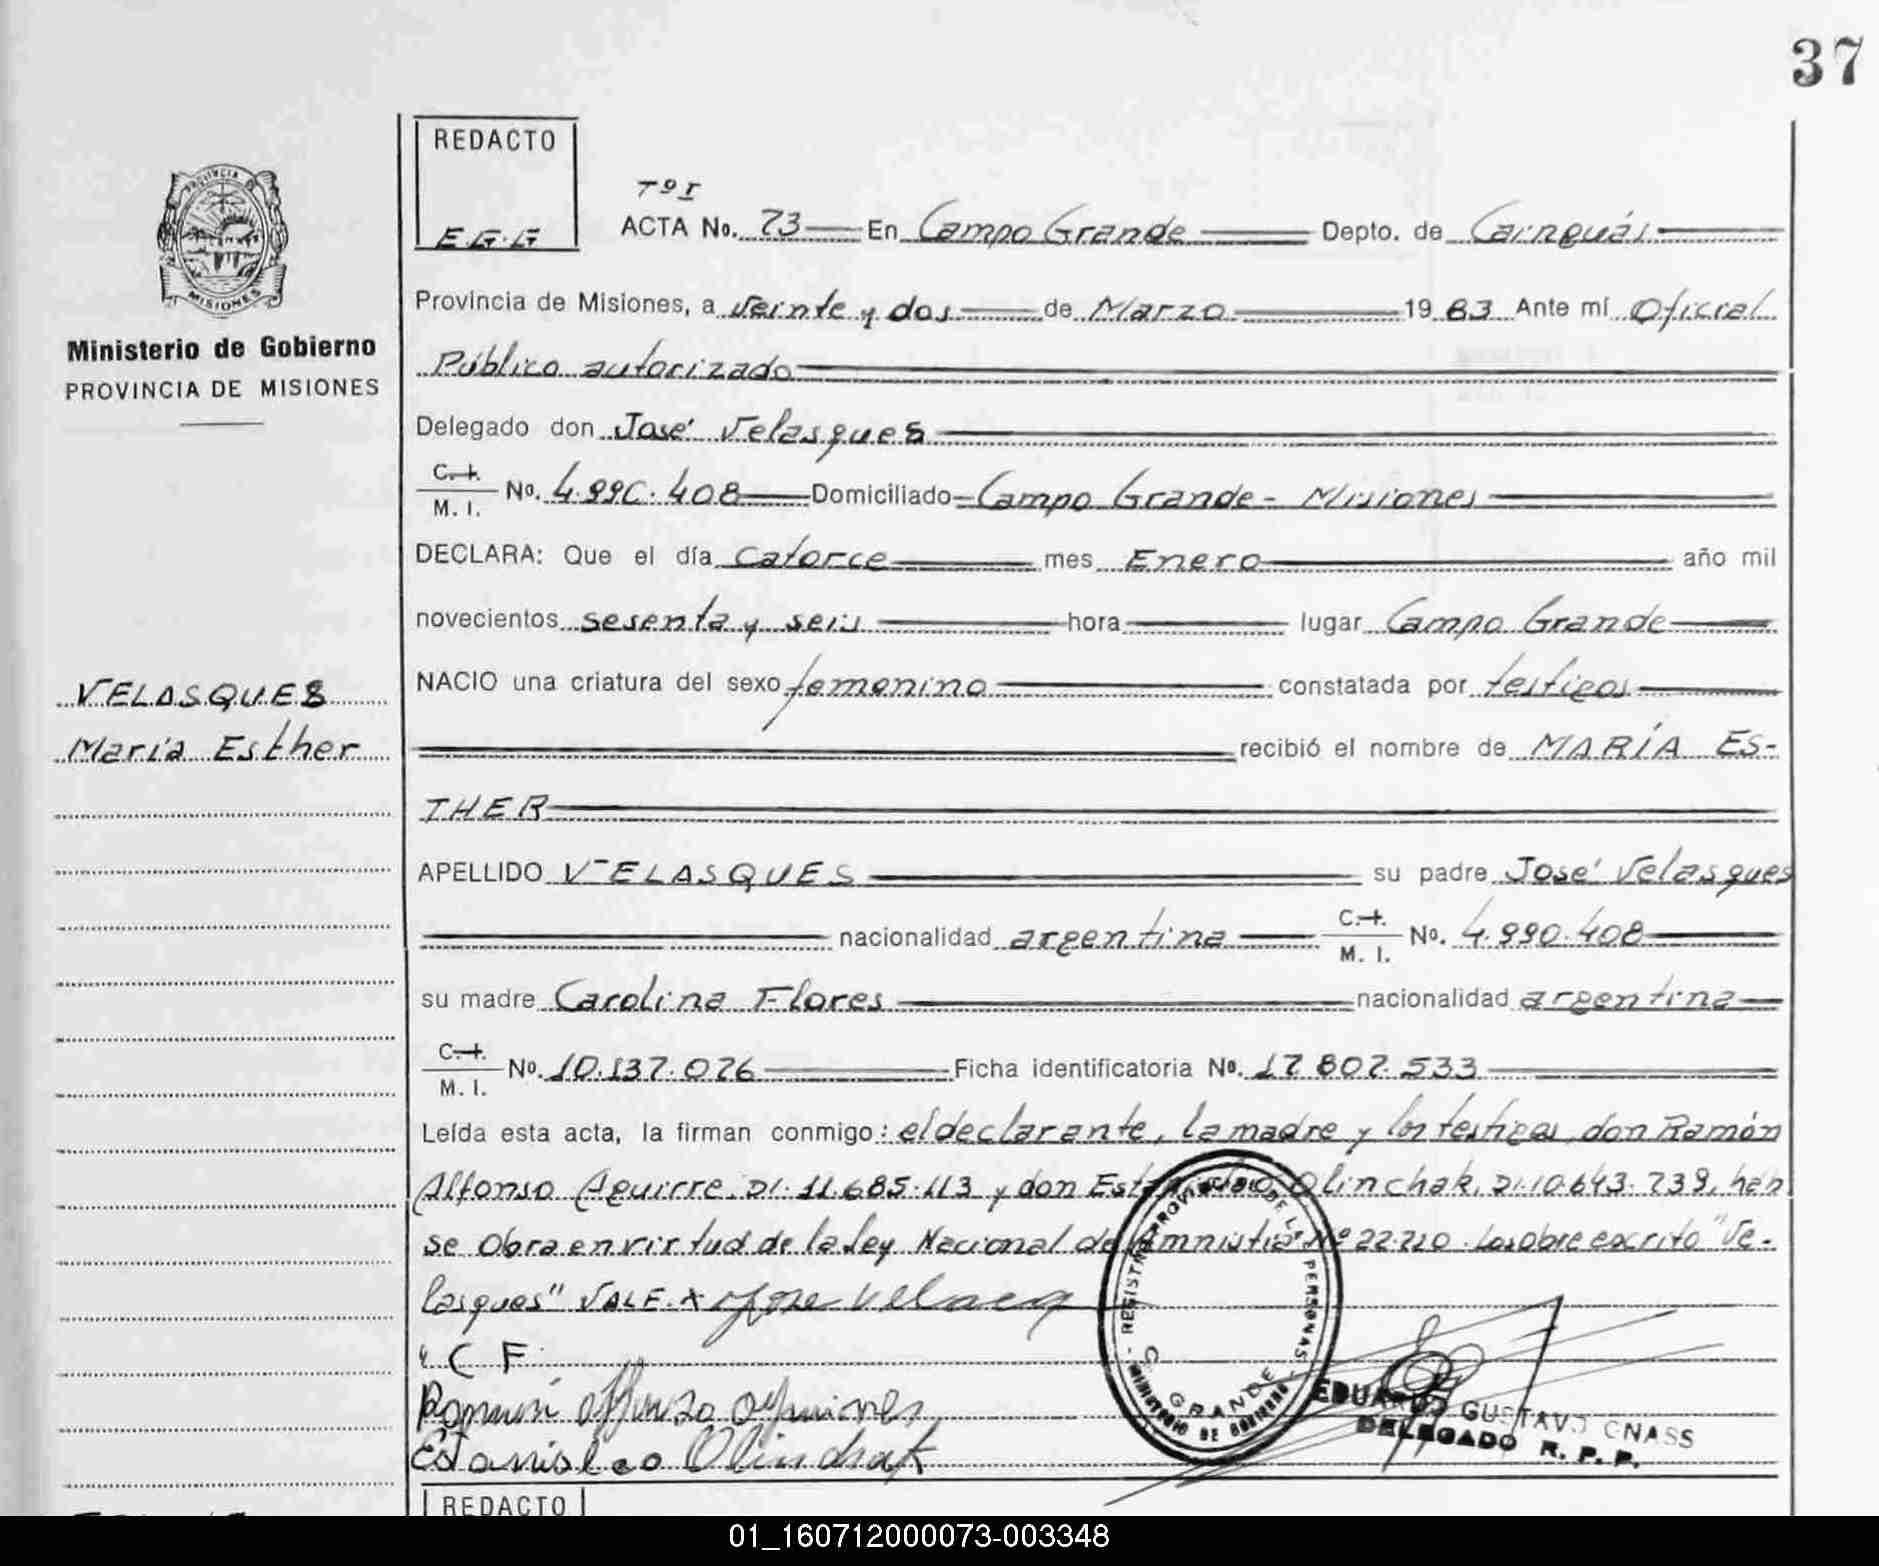 37
REDACTO
E.G.G
PROVINCIA DE
MISIONES
Ministerio de Gobierno
PROVINCIA DE MISIONES
Tº I
ACTA No. 73 En Campo Grande Depto. de Cainguás
Provincia de Misiones, a veinte y dos de Marzo 1983 Ante mí Oficial
Público autorizado
Delegado don José Velasques
C. I. M. I. No. 4.990.408 Domiciliado Campo Grande - Misiones
DECLARA: Que el día catorce mes Enero año mil
novecientos sesenta y seis hora lugar Campo Grande
NACIO una criatura del sexo femenino constatada por testigos
VELASQUES
María Esther
recibió el nombre de MARÍA ES-
THER
APELLIDO VELASQUES su padre José Velasques
nacionalidad argentina C. I. M. I. No. 4.990.408
su madre Carolina Flores nacionalidad argentina
C. I. M. I. No. 10.137.076 Ficha identificatoria No. 17.807.533
Leída esta acta, la firman conmigo: el declarante, la madre y los testigos don Ramón
Alfonso Aguirre, DI. 11.685.113 y don Estanislao Olinchak, DI. 10.643.739, hén
se obra en virtud de la ley Nacional de Amnistía Nº 22.710. Lo sobre escrito "Ve-
lasques" VALE. x Jose Velasq
C F
Estanisleo Olinchak
REGISTRO PROVINCIAL DE LAS PERSONAS
C. GRANDE
MINISTERIO DE GOBIERNO
EDUARDO GUSTAVO GNASS
DELEGADO R. P. P.
REDACTO
01_160712000073-003348